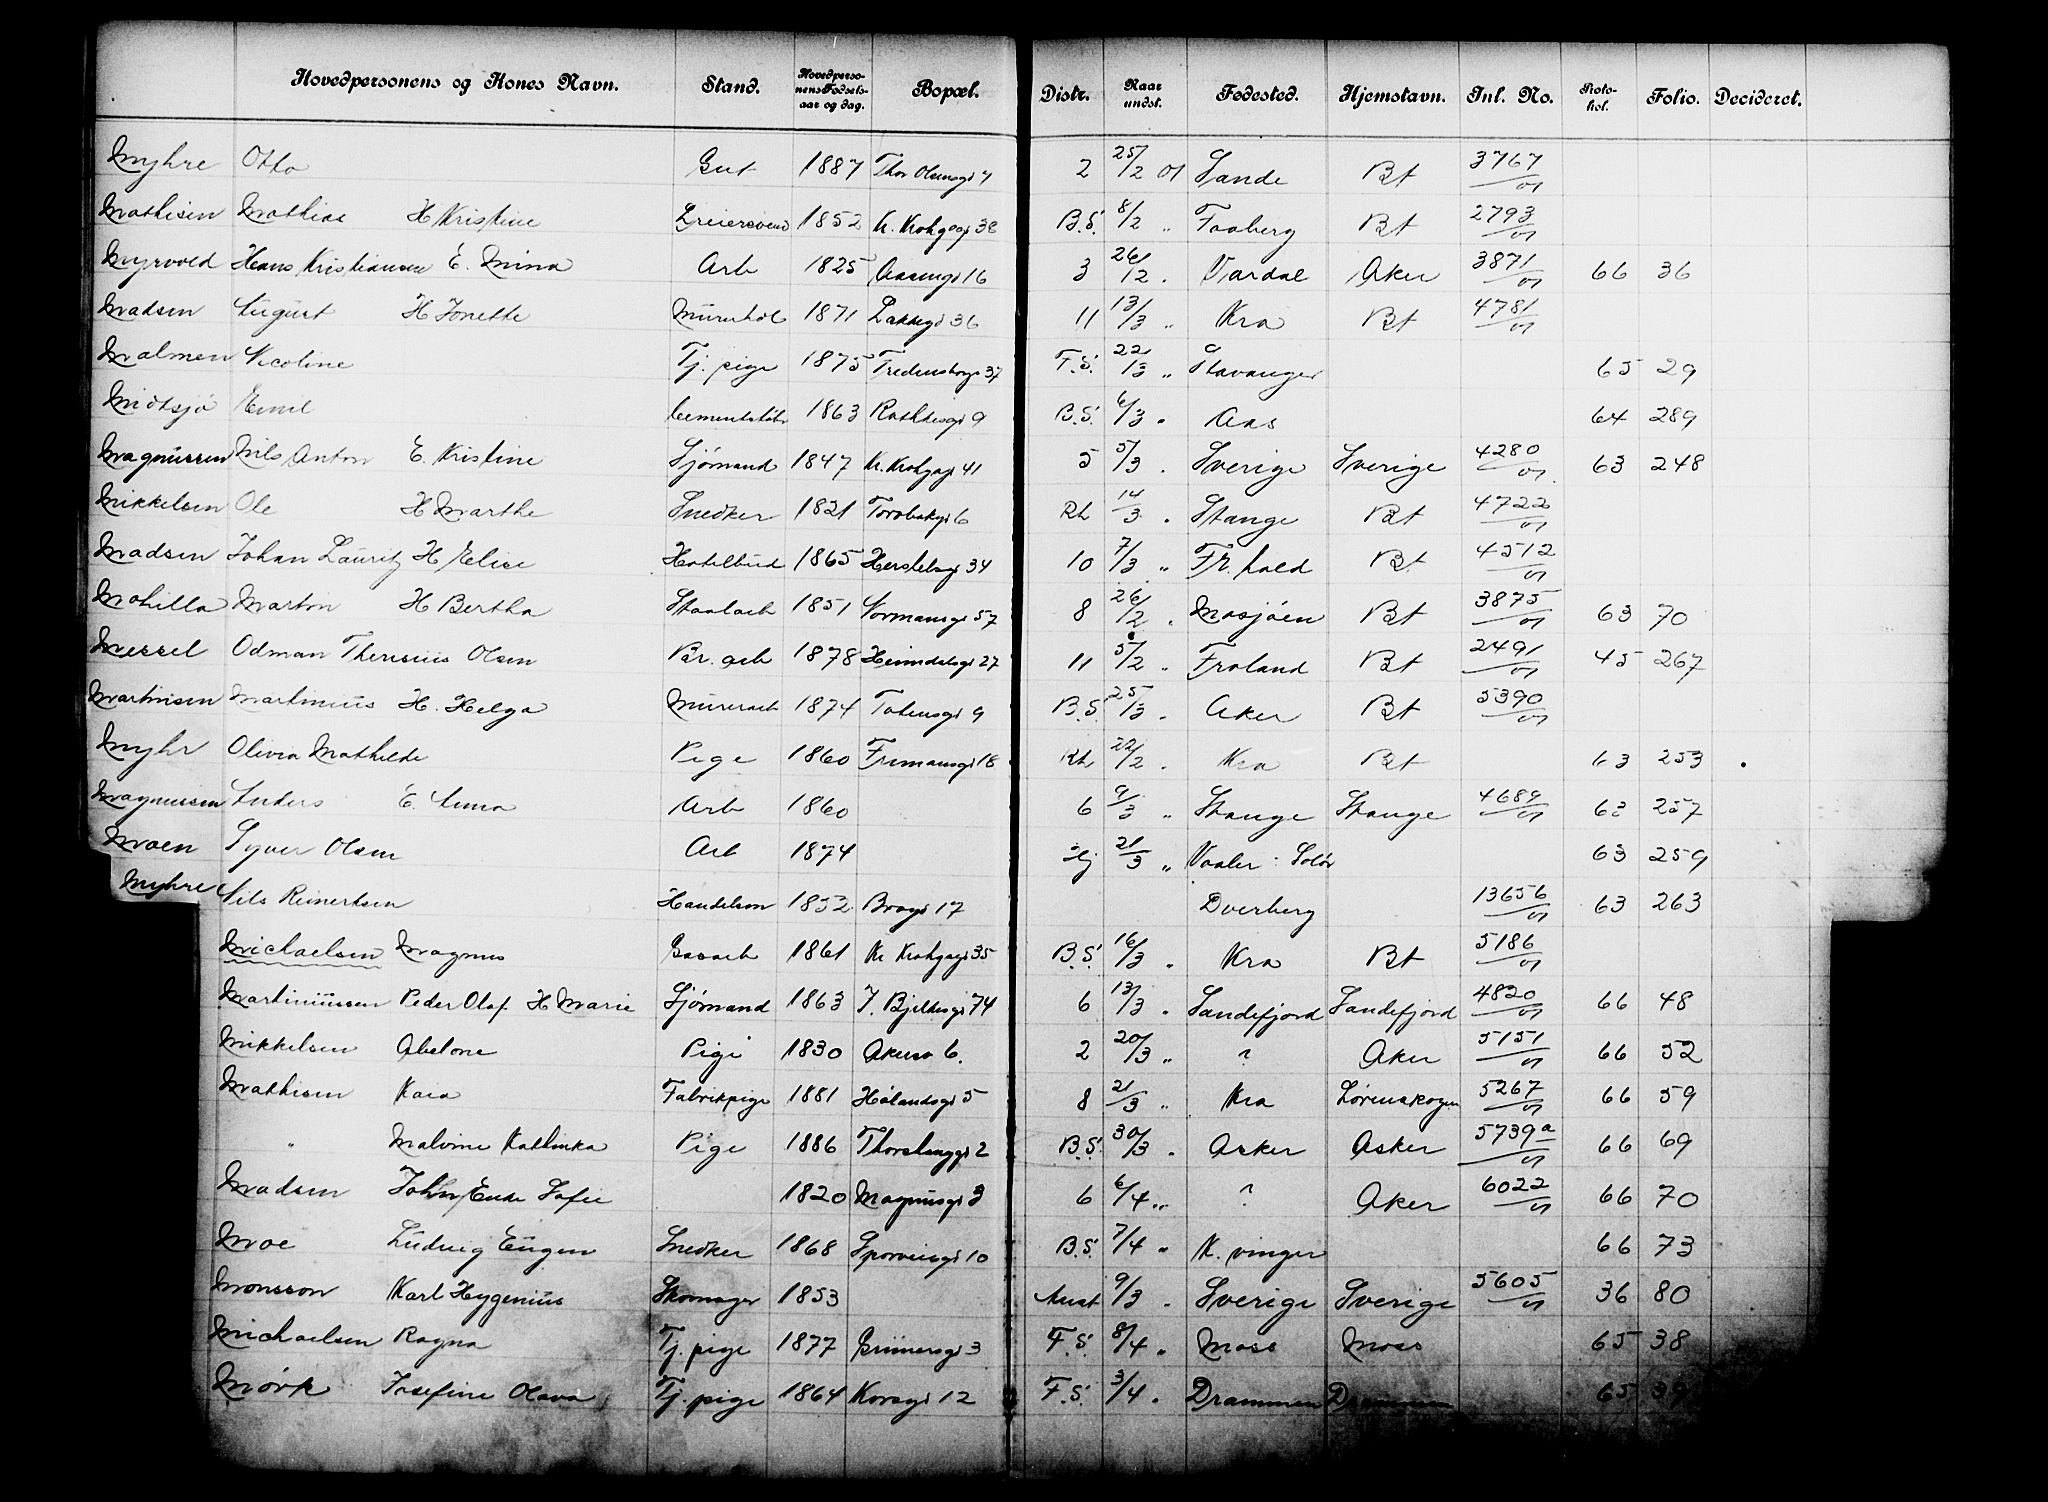 Hovedpersonens og Kones Navn. Stand. Hovedpersonens Fødselsaar og dag. Bopæl. Distr. Naar undst. Fødested. Hjemstavn. Inl. No. Protokol. Folio. Decideret.
Myhre Otto Gut 1887 Thor Olsensgd 4 2 25/2 01 Sande Bt 3767/01
Mathisen Mathias H Kristine Dreiersvend 1852 K. Krohgsgd 38 B.S. 8/2 " Faaberg Bt 2793/01
Myrvold Hans Kristiansen E. Mina Arb 1825 Aasengd 16 3 26/12 " Vardal Aker 3871/01 66 36
Madsen August H Jonette Murerhdl 1871 Lakkegd 36 11 13/3 " Kra Bt 4781/01
Malmen Nicoline Tj. pige 1875 37 F.S. 22/3 " Stavanger 65 29
Midtsjø Emil Cementstøb 1863 Rathkesgd 9 B.S. 6/3 " Aas 64 289
Magnussen Nils Anton E. Kristine Sjømand 1847 Kr. Krohgsgd 41 5 5/3 " Sverige Sverige 4280/01 63 248
Mikkelsen Ole H Marthe Snedker 1821 Torvbakgd 6 Rh 14/3 " Stange Bt 4722/01
Madsen Johan Lauritz H Elise Hotelbud 1865 Herslebsgd 34 10 7/3 " Fr. hald Bt 4512/01
Mohilla Martin H Bertha Staalarb 1851 Normansgd 57 8 26/2 " Mosjøen Bt 3875/01 63 70
Messel Odman Theresius Olsen Br. arb 1878 Heimdalsgd 27 11 5/2 " Froland Bt 2491/01 45 267
Martinsen Martinius H. Helga Murerarb 1874 Totensgd 9 B.S. 25/3 " Aker Bt 5390/01
Myhr Olivia Mathilde Pige 1860 Frimansgd 18 Rh 22/2 " Kra Bt 63 253
Magnussen Anders E. Anna Arb 1860 6 9/3 " Stange Stange 4689/01 63 257
Moen Syver Olsen Arb 1874 Hj 21/3 " Vaaler i Solør 63 259
Myhre Nils Reinertsen Handelsm 1852 Bragd 17 Dverberg 13656/01 63 263
Michaelsen Magnus Gasarb 1861 Kr Krohgsgd 35 B.S. 16/3 " Kra Bt 5186/01
Martiniussen Peder Olaf H Marie Sjømand 1863 J. Bjelkesgd 74 6 13/3 " Sandefjord Sandefjord 4820/01 66 48
Mikkelsen Abelone Pige 1830 Akersv 6. 2 20/3 " ? Aker 5151/01 66 52
Mathisen Kaia Fabrikpige 1881 Hølandsgd 5 8 21/3 " Kra Lørenskogen 5267/01 66 59
" Malvine Kathinka Pige 1886 Thorshauggd 2 B.S. 30/3 " Asker Asker 5739a/01 66 69
Madsen Enke Sofie 1820 Magnusgd 3 6 6/4 " ? Aker 6022/01 66 70
Moe Ludvig Eugen Snedker 1868 Sporveisgd 10 B.S. 7/4 " K. vinger 66 73
Monsson Karl Hygenius Skomager 1853 Anst 9/3 " Sverige Sverige 5605/01 36 80
Michaelsen Ragna Tj. pige 1877 Grünersgd 3 F.S. 8/4 " Moss Moss 65 38
Mørk Josefine Olava Tj. pige 1864 Korsgd 12 F.S. 3/4 " Drammen Drammen 65 39